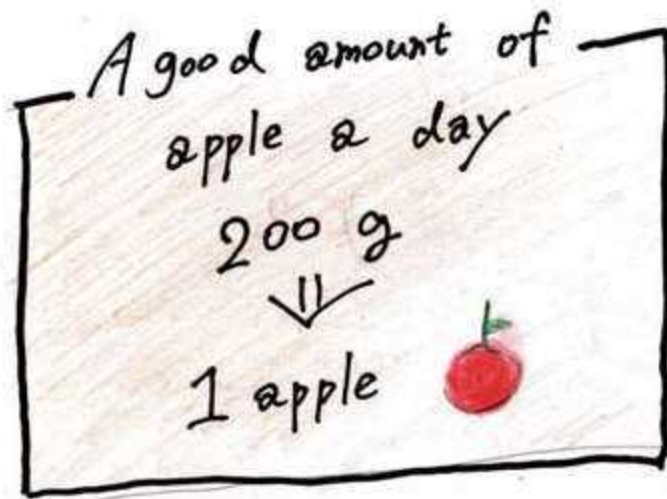 A good amount of
apple a day
200 g
1 apple